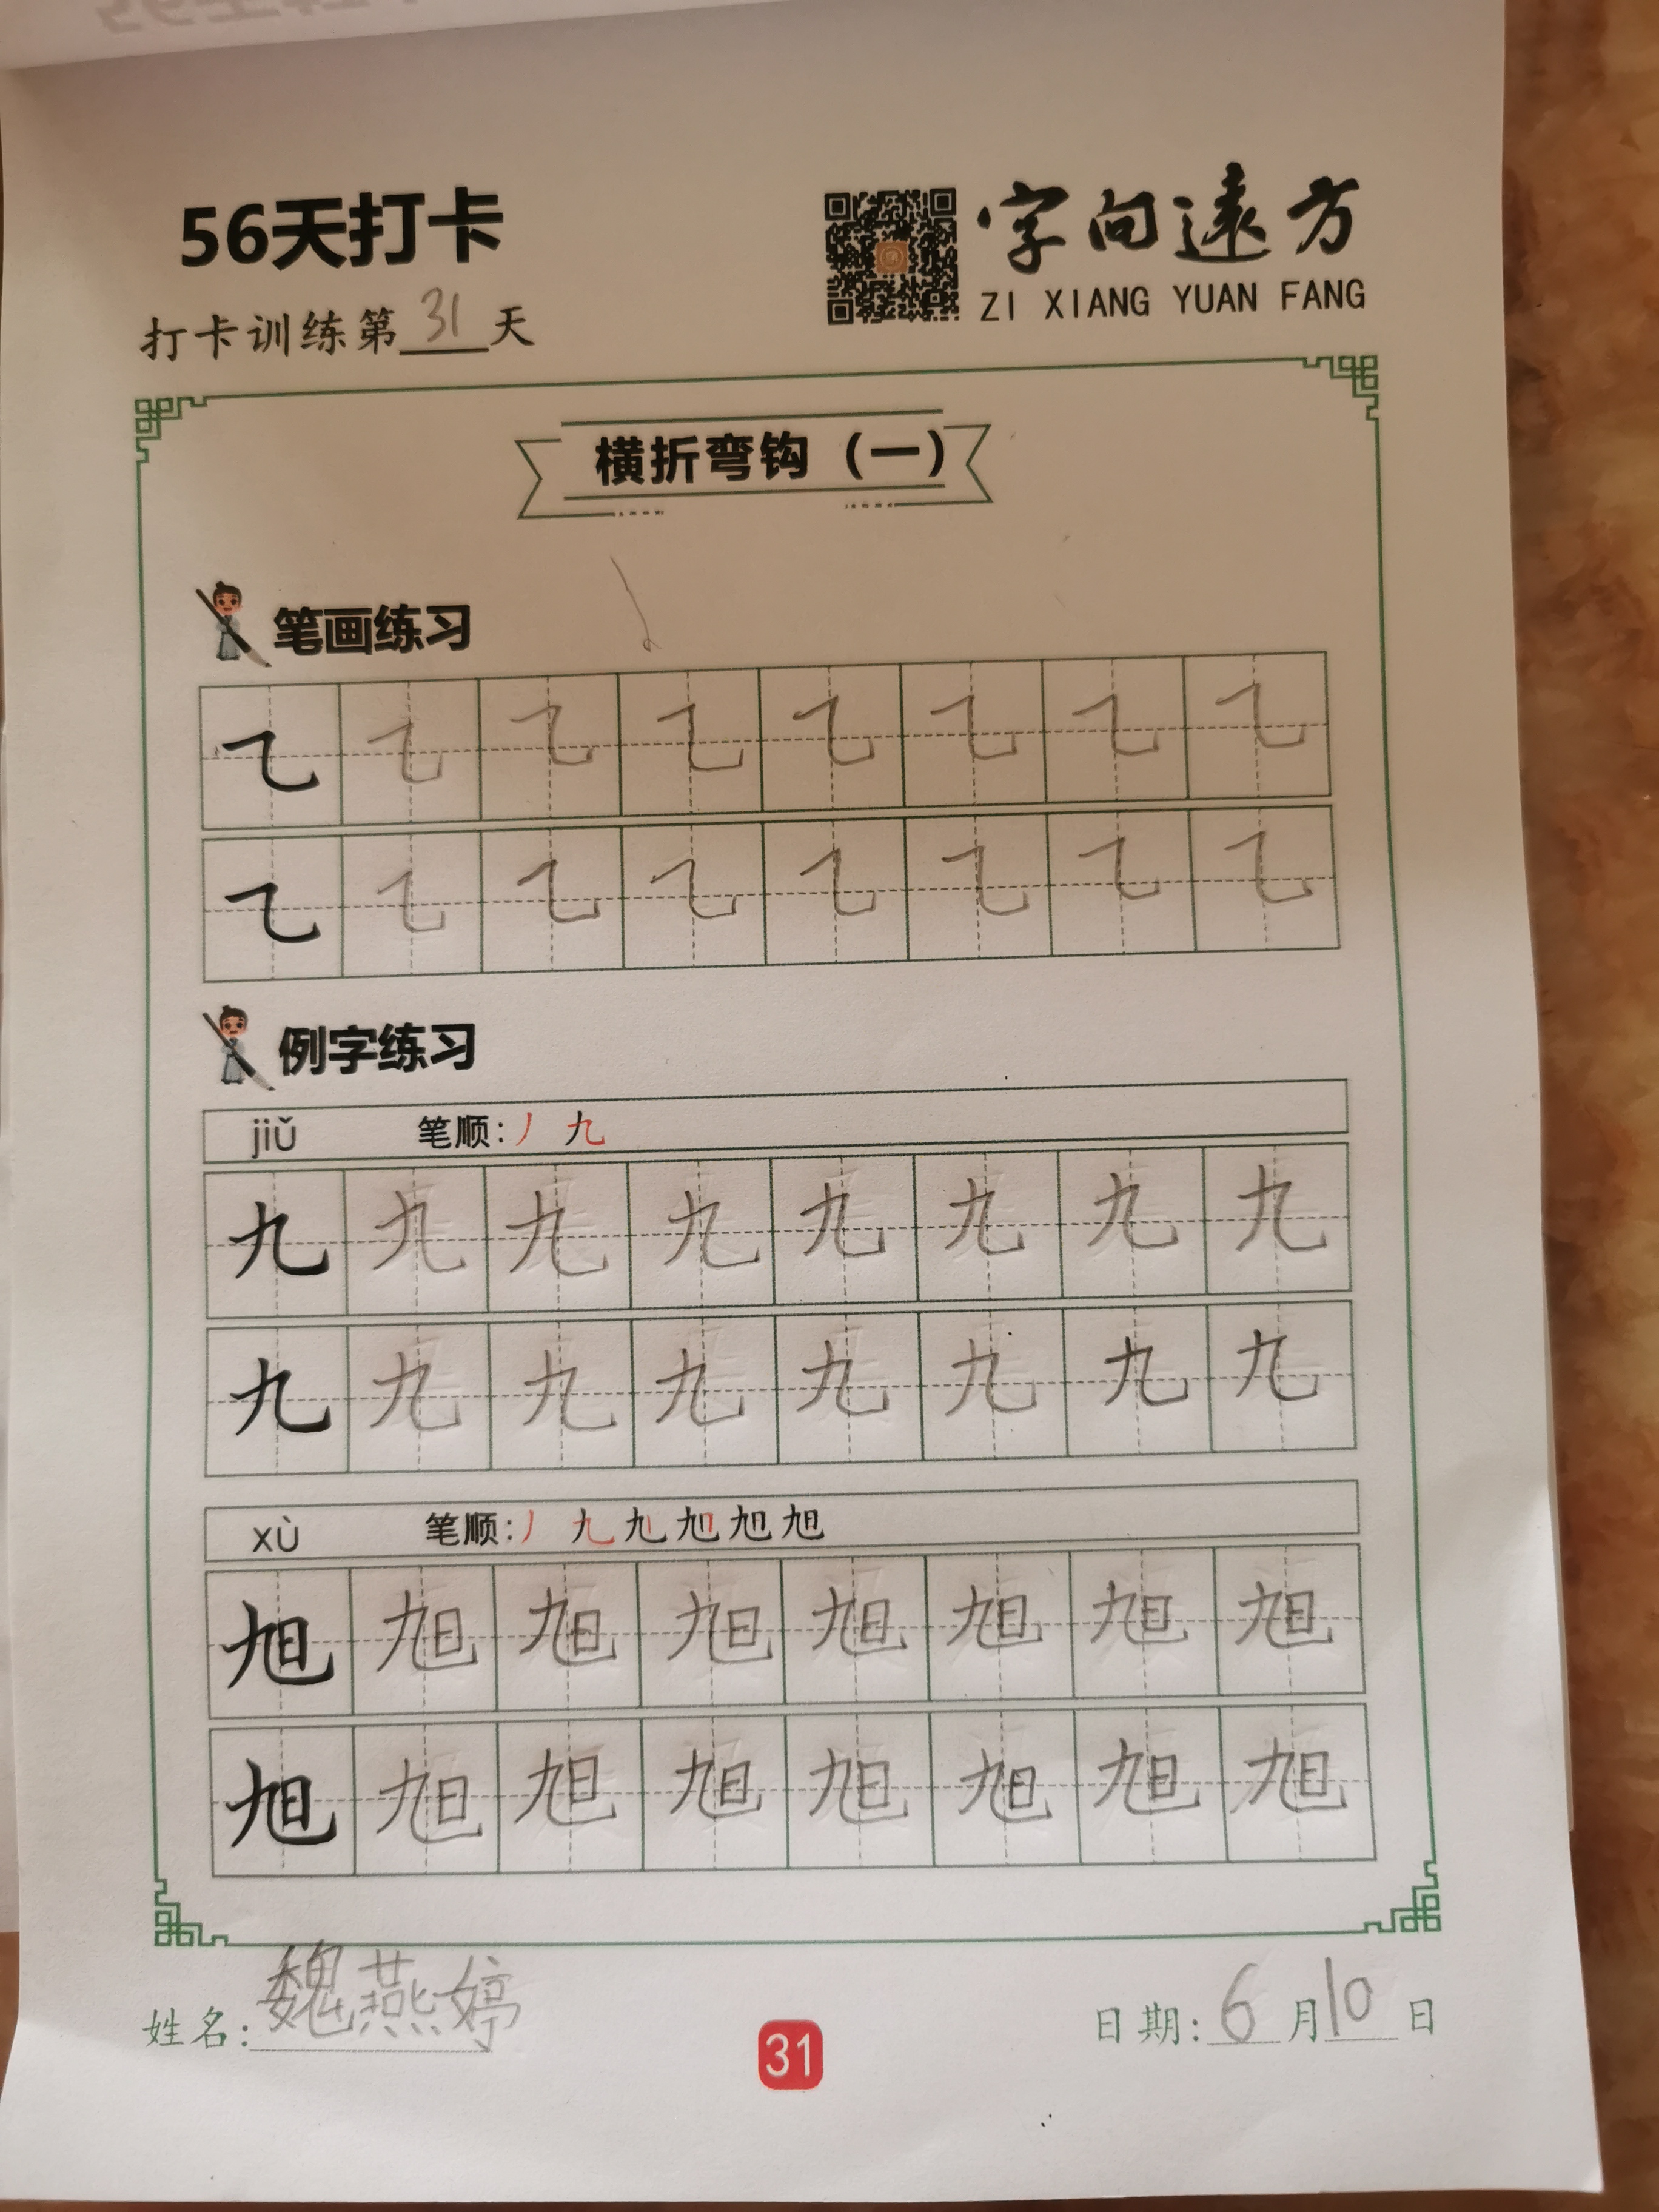 56天打卡
字向遠方
ZI XIANG YUAN FANG
打卡训练第31天
横折弯钩（一）
笔画练习
㇈ ㇈ ㇈ ㇈ ㇈ ㇈ ㇈ ㇈
㇈ ㇈ ㇈ ㇈ ㇈ ㇈ ㇈ ㇈
例字练习
jiǔ 笔顺：丿 九
九 九 九 九 九 九 九 九
九 九 九 九 九 九 九 九
xù 笔顺：丿 九 旭 旭 旭 旭
旭 旭 旭 旭 旭 旭 旭 旭
旭 旭 旭 旭 旭 旭 旭 旭
姓名：魏燕婷
31
日期：6月10日